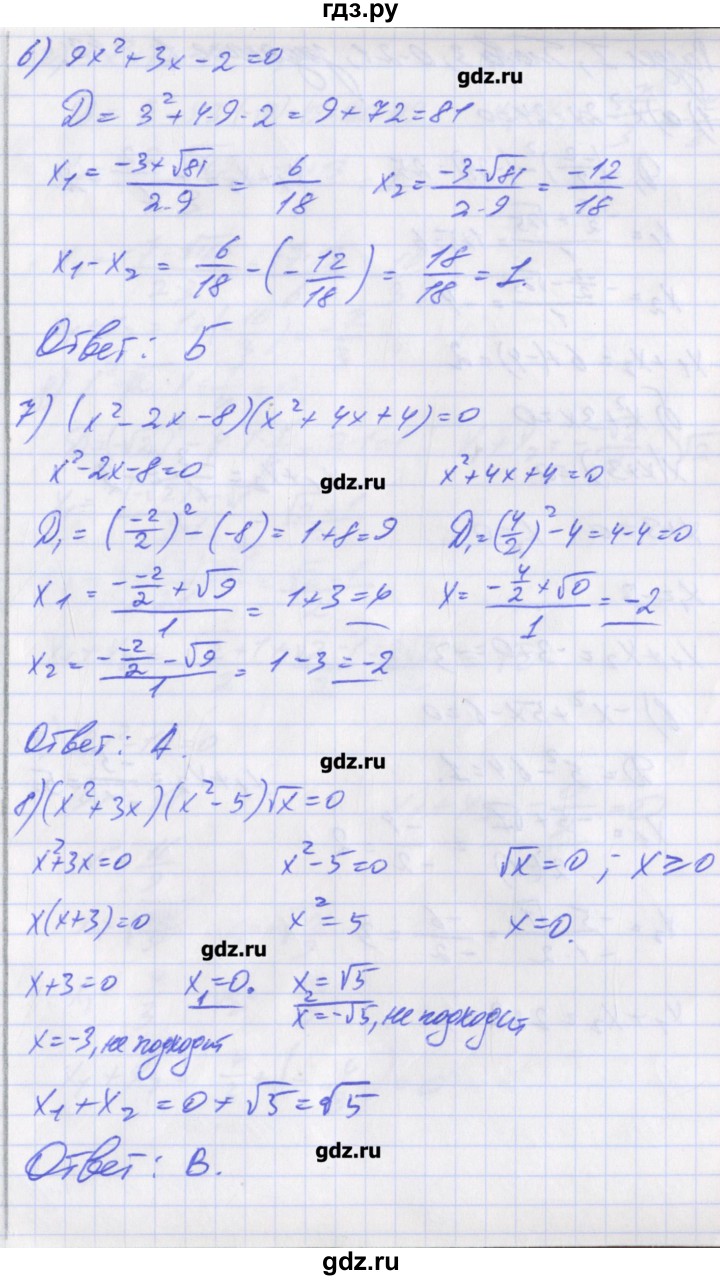 гдз.ру
6) 9x²+3x-2=0
gdz.ru
D= 3²+4·9·2=9+72=81
x₁= (-3+√81)/(2·9) = 6/18 x₂= (-3-√81)/(2·9) = -12/18
x₁-x₂ = 6/18 -(-12/18) = 18/18 = 1.
Ответ: Б
7) (x²-2x-8)(x²+4x+4)=0
x²-2x-8=0 gdz.ru x²+4x+4=0
D₁=(-2/2)²-(-8)=1+8=9 D₁=(4/2)²-4=4-4=0
x₁= (- -2/2 +√9)/1 = 1+3=4 x= (-4/2+√0)/1 = -2
x₂= (- -2/2 -√9)/1 = 1-3=-2
Ответ: А.
gdz.ru
8)(x²+3x)(x²-5)√x=0
x²+3x=0 x²-5=0 √x=0; x≥0
x(x+3)=0 x²=5 x=0.
gdz.ru
x+3=0 x₁=0. x₂=√5
x=-√5, не подходит
x=-3, не подходит
x₁+x₂=0+√5=√5
Ответ: В.
gdz.ru
gdz.ru